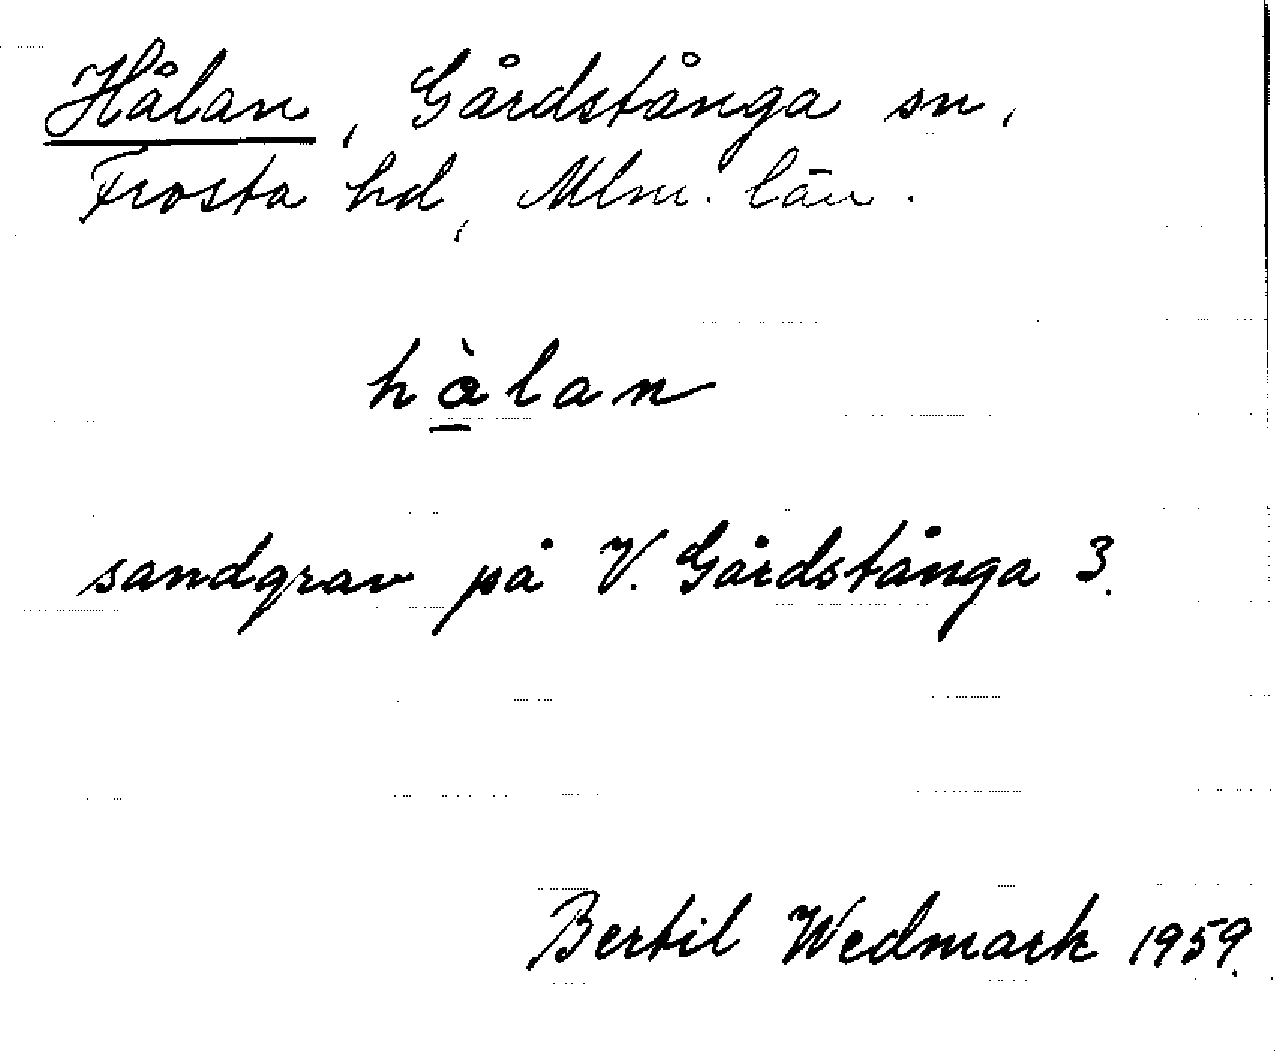 Hålan, Gårdstånga sn,
Frosta hd, Mlm. län.
hàlan
sandgrav på V. Gårdstånga 3.
Bertil Wedmark 1959.